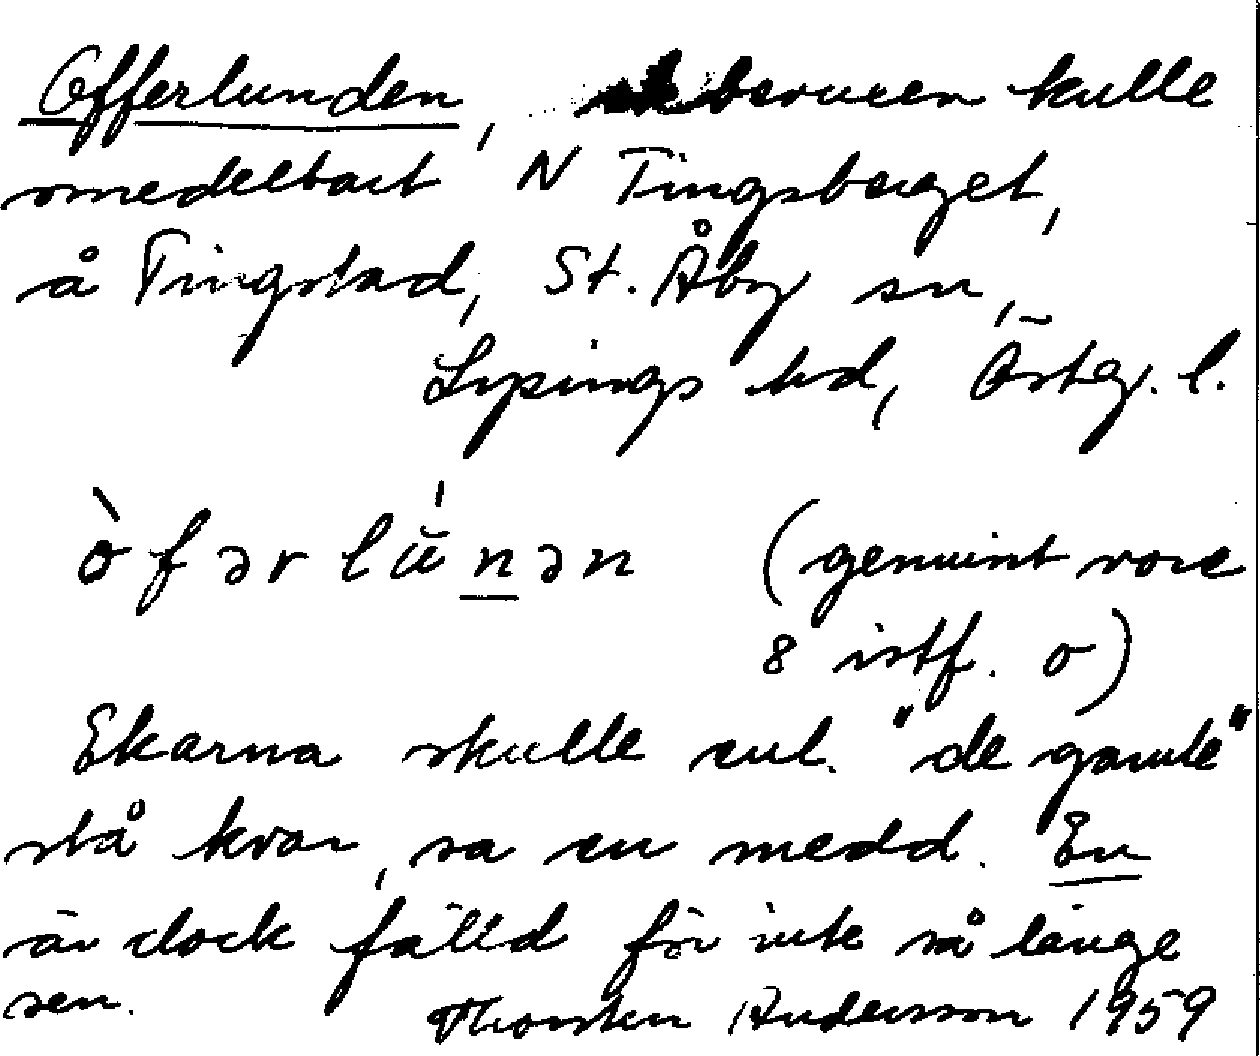 Offerlunden, ekbevuxen kulle
omedelbart N Tingsberget,
å Tingstad, St. Åby sn,
Lysings hd, Östg. l.
òfərlŭ́nən (genuint vore
8 istf. o)
Ekarna skulle enl. "de gamle"
stå kvar, sa en medd. En
är dock fälld för inte så länge
sen. Thorsten Andersson 1959